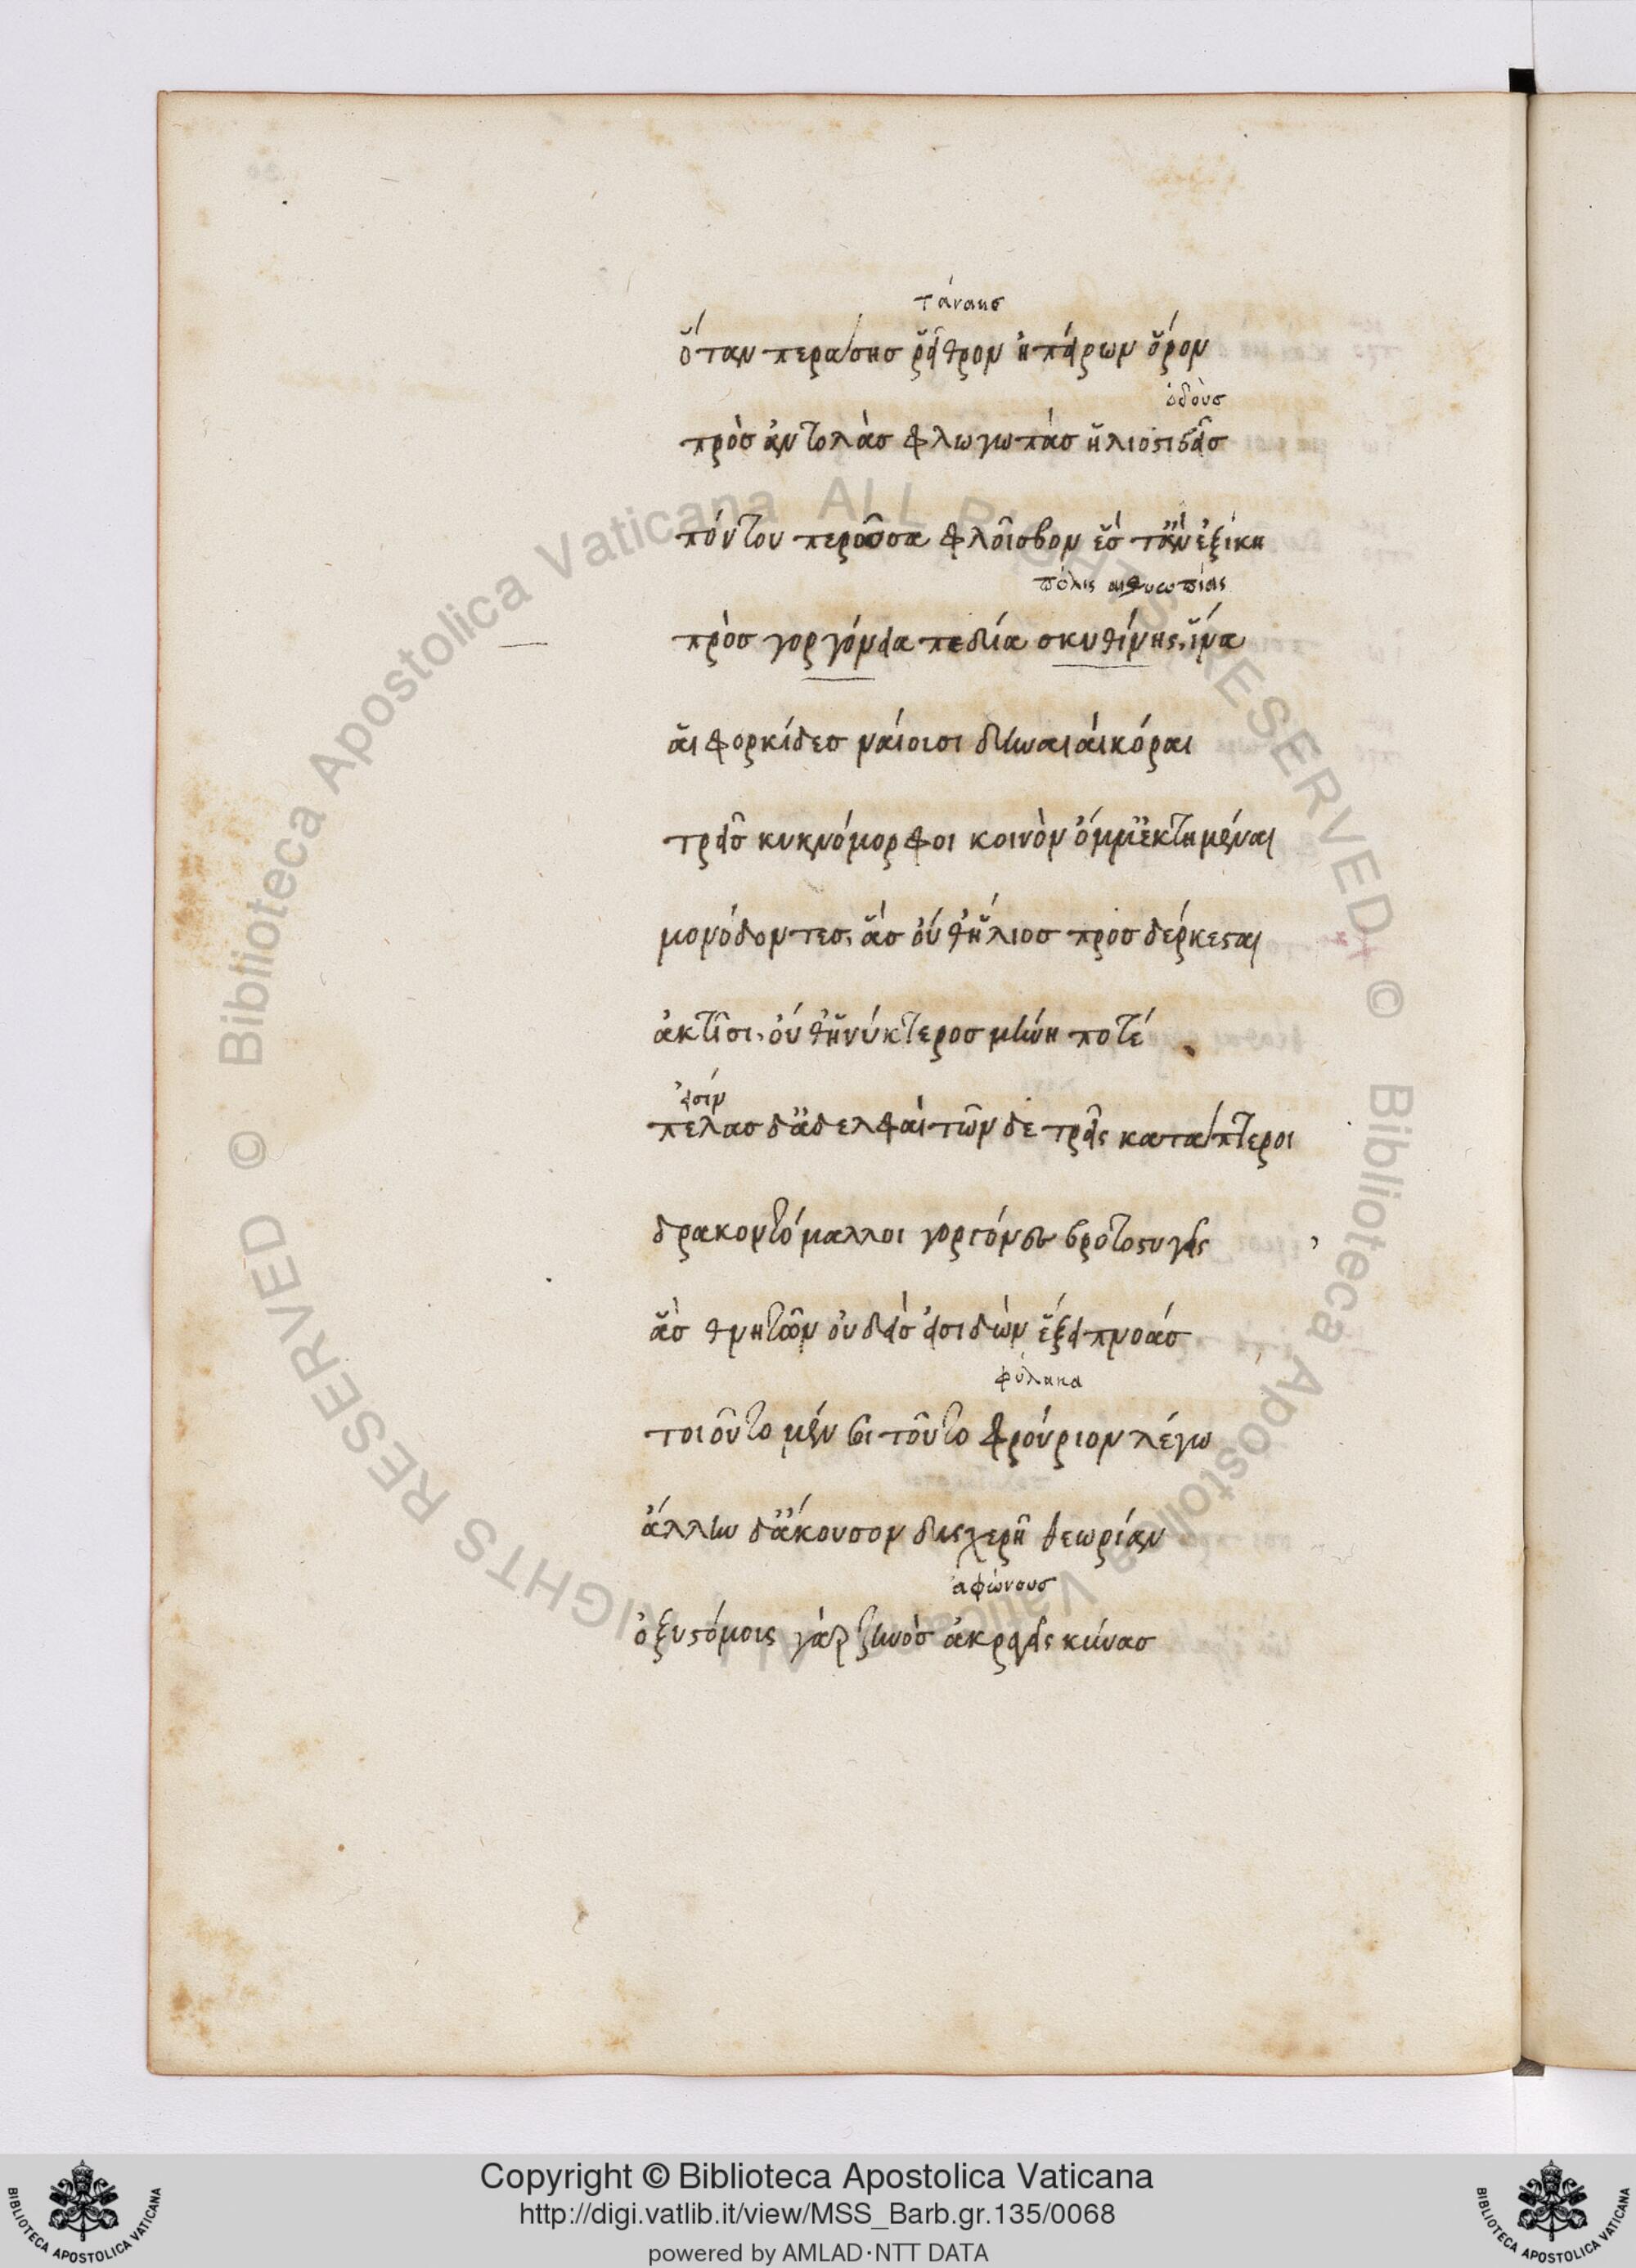 τάναις
ὅταν περάσης ῥεῖθρον ἠπείρων ὅρον
ὁδοὺς
πρὸς ἀντολὰς φλωγωπὰς ἡλιοστιβεῖς
πόντου περῶσα φλοῖσβον ἔς τ' ἂν ἐξίκη
πόλις αἰθιωπίας
πρὸς γοργόνεια πεδία σκυθίνης, ἵνα
αἱ φορκίδες ναίουσι δηναιαὶ κόραι
τρεῖς κυκνόμορφοι κοινὸν ὄμμ' ἐκτημέναι
μονόδοντες, ἃς οὔθ' ἥλιος προσδέρκεται
ἀκτῖσι, οὔθ' ἡ νύκτερος μήνη ποτέ
εἰσίν
πέλας δ' ἀδελφαὶ τῶνδε τρεῖς κατάπτεροι
δρακοντόμαλλοι γοργόνες βροτοστυγεῖς
ἃς θνητῶν οὐδεὶς εἰσιδὼν ἕξει πνοάς
φύλακα
τοιοῦτο μέν σοι τοῦτο φρούριον λέγω
ἄλλην δ' ἄκουσον δυσχερῆ θεωρίαν
ἀφώνους
ὀξυστόμους γὰρ ζηνὸς ἀκραγεῖς κύνας
Biblioteca Apostolica Vaticana ALL RIGHTS RESERVED ©
Biblioteca Apostolica Vaticana ALL RIGHTS RESERVED ©
Copyright © Biblioteca Apostolica Vaticana
http://digi.vatlib.it/view/MSS_Barb.gr.135/0068
powered by AMLAD·NTT DATA
BIBLIOTECA APOSTOLICA VATICANA
BIBLIOTECA APOSTOLICA VATICANA